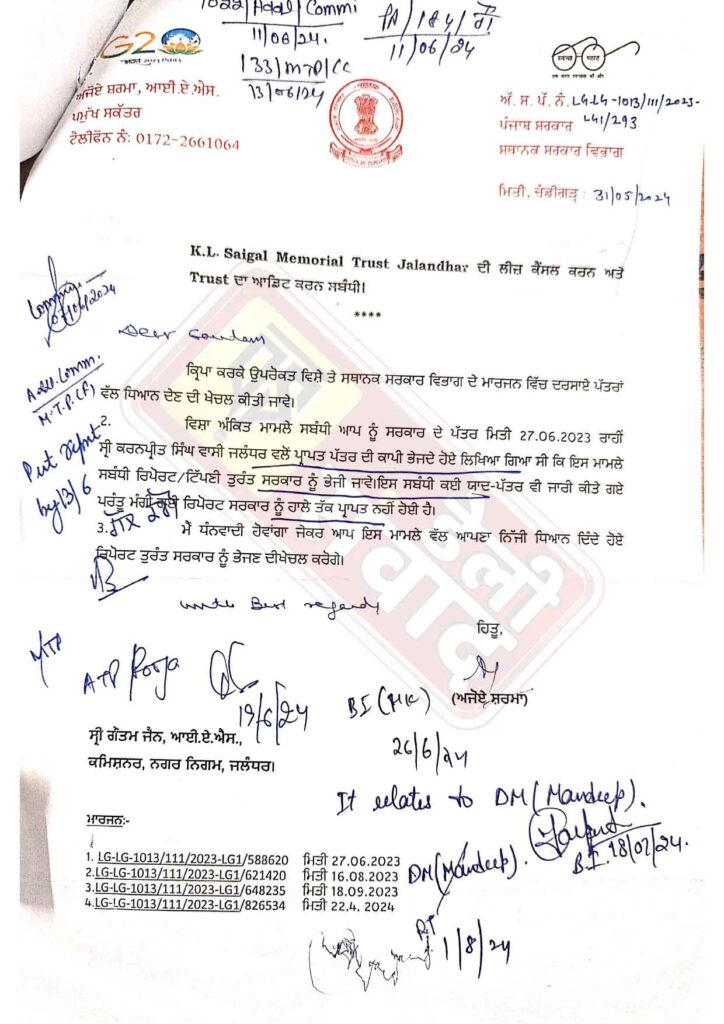 1022/Addl/Commi
11/06/24.
PA/184/ਗੌ
11/06/24
133/MTP/CC
13/06/24
G20
ਅਜੋਏ ਸ਼ਰਮਾ, ਆਈ.ਏ.ਐਸ.
ਪਰਮੁੱਖ ਸਕੱਤਰ
ਟੈਲੀਫੋਨ ਨੰ: 0172-2661064
ਅੱ. ਸ. ਪੱ. ਨੰ. LG-LG-1013/111/2023-
LG1/293
ਪੰਜਾਬ ਸਰਕਾਰ
ਸਥਾਨਕ ਸਰਕਾਰ ਵਿਭਾਗ
ਮਿਤੀ, ਚੰਡੀਗੜ੍ਹ : 31/05/2024
K.L. Saigal Memorial Trust Jalandhar ਦੀ ਲੀਜ਼ ਕੈਂਸਲ ਕਰਨ ਅਤੇ
Trust ਦਾ ਆਡਿਟ ਕਰਨ ਸਬੰਧੀ।
****
Dear Gautam
ਕ੍ਰਿਪਾ ਕਰਕੇ ਉਪਰੋਕਤ ਵਿਸ਼ੇ ਤੇ ਸਥਾਨਕ ਸਰਕਾਰ ਵਿਭਾਗ ਦੇ ਮਾਰਜਨ ਵਿੱਚ ਦਰਸਾਏ ਪੱਤਰਾਂ
ਵੱਲ ਧਿਆਨ ਦੇਣ ਦੀ ਖੇਚਲ ਕੀਤੀ ਜਾਵੇ।
Addl. Comm.
M.T.P.(P)
2. ਵਿਸ਼ਾ ਅੰਕਿਤ ਮਾਮਲੇ ਸਬੰਧੀ ਆਪ ਨੂੰ ਸਰਕਾਰ ਦੇ ਪੱਤਰ ਮਿਤੀ 27.06.2023 ਰਾਹੀਂ
ਸ੍ਰੀ ਕਰਨਪ੍ਰੀਤ ਸਿੰਘ ਵਾਸੀ ਜਲੰਧਰ ਵਲੋਂ ਪ੍ਰਾਪਤ ਪੱਤਰ ਦੀ ਕਾਪੀ ਭੇਜਦੇ ਹੋਏ ਲਿਖਿਆ ਗਿਆ ਸੀ ਕਿ ਇਸ ਮਾਮਲੇ
ਸਬੰਧੀ ਰਿਪੋਰਟ/ਟਿੱਪਣੀ ਤੁਰੰਤ ਸਰਕਾਰ ਨੂੰ ਭੇਜੀ ਜਾਵੇ।ਇਸ ਸਬੰਧੀ ਕਈ ਯਾਦ-ਪੱਤਰ ਵੀ ਜਾਰੀ ਕੀਤੇ ਗਏ
ਪਰੰਤੂ ਮੰਗੀ ਗਈ ਰਿਪੋਰਟ ਸਰਕਾਰ ਨੂੰ ਹਾਲੇ ਤੱਕ ਪ੍ਰਾਪਤ ਨਹੀਂ ਹੋਈ ਹੈ।
Put
by 13/6
3. ਮੈਂ ਧੰਨਵਾਦੀ ਹੋਵਾਂਗਾ ਜੇਕਰ ਆਪ ਇਸ ਮਾਮਲੇ ਵੱਲ ਆਪਣਾ ਨਿੱਜੀ ਧਿਆਨ ਦਿੰਦੇ ਹੋਏ
ਰਿਪੋਰਟ ਤੁਰੰਤ ਸਰਕਾਰ ਨੂੰ ਭੇਜਣ ਦੀਖੇਚਲ ਕਰੋਗੇ।
with Best regards
ਹਿਤੂ,
(ਅਜੋਏ ਸ਼ਰਮਾ)
MTP
ATP Pooja
19/6/24
BI (MK)
26/6/24
ਸ੍ਰੀ ਗੌਤਮ ਜੈਨ, ਆਈ.ਏ.ਐਸ.,
ਕਮਿਸ਼ਨਰ, ਨਗਰ ਨਿਗਮ, ਜਲੰਧਰ।
It relates to DM (Mandeep).
B.I. 18/07/24.
ਮਾਰਜਨ:-
1. LG-LG-1013/111/2023-LG1/588620 ਮਿਤੀ 27.06.2023
2.LG-LG-1013/111/2023-LG1/621420 ਮਿਤੀ 16.08.2023
3.LG-LG-1013/111/2023-LG1/648235 ਮਿਤੀ 18.09.2023
4.LG-LG-1013/111/2023-LG1/826534 ਮਿਤੀ 22.4. 2024
DM (Mandeep).
1/8/24
ਡੇਲੀ
ਸੰਵਾਦ